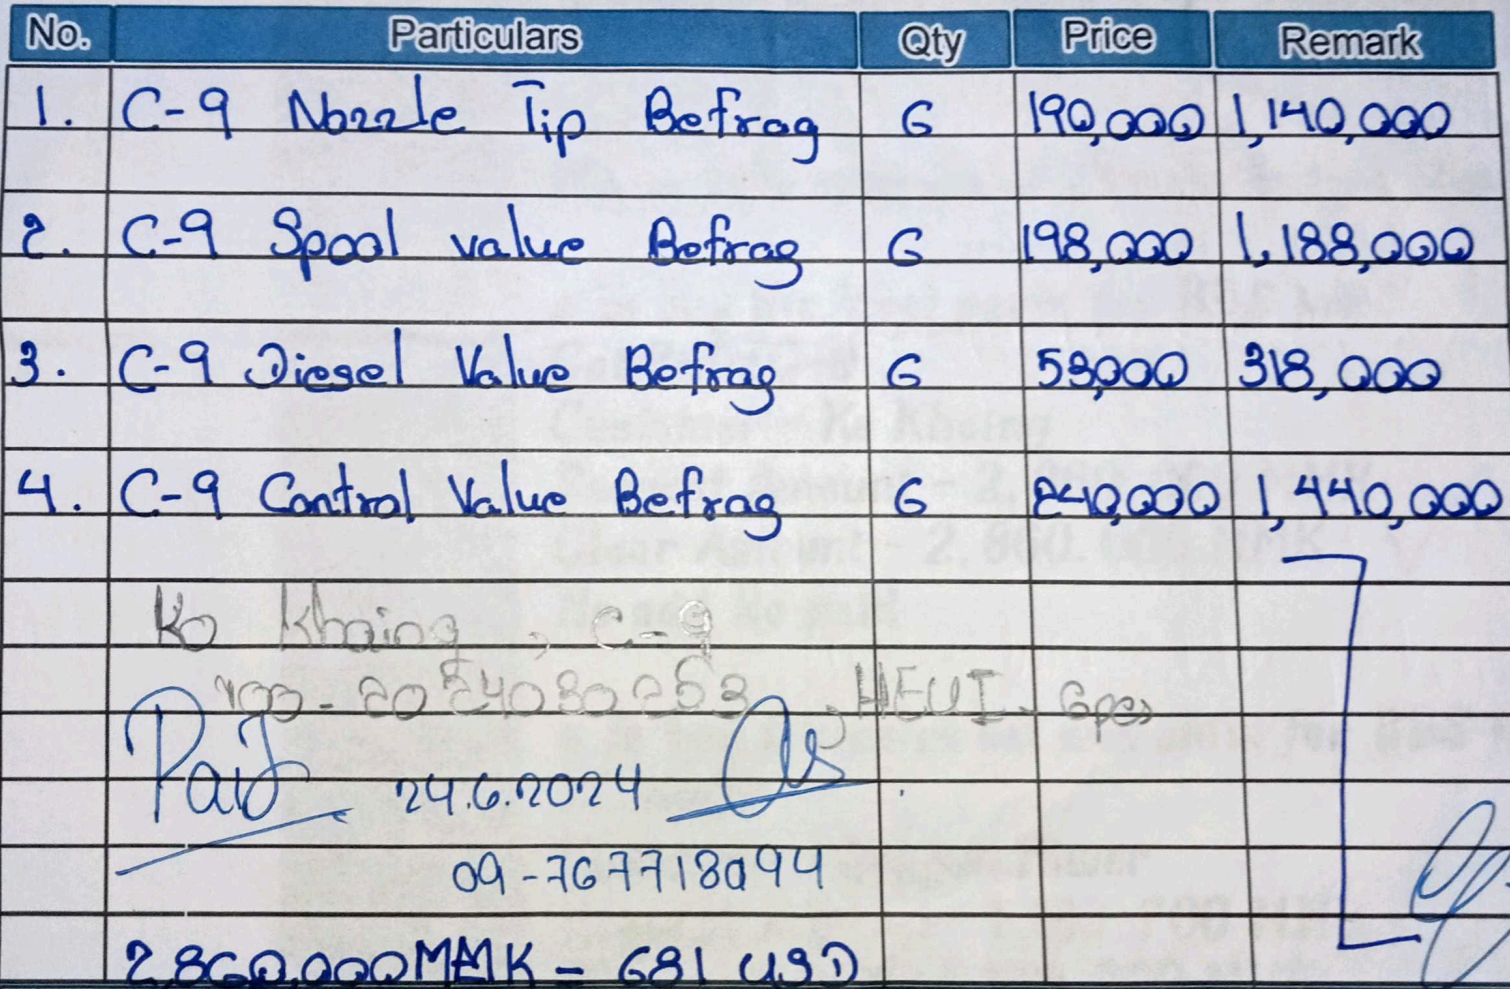 No. Particulars Qty Price Remark
1. C-9 Nozzle Tip Befrag 6 190,000 1,140,000
2. C-9 Spool value Befrag 6 198,000 1,188,000
3. C-9 Diesel Value Befrag 6 53,000 318,000
4. C-9 Control Value Befrag 6 240,000 1,440,000
Ko Khaing, C-9
2024030253, HEUI - 6pcs
Paid 24.6.2024
09-767718994
2,860,000MMK = 681 USD